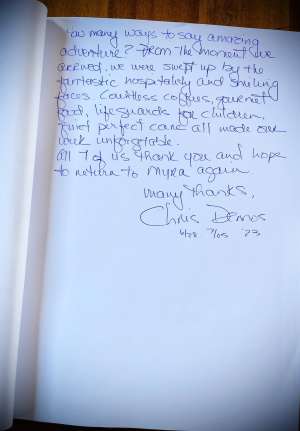 How many ways to say amazing
adventure? From the moment we
arrived, we were swept up by the
fantastic hospitality and smiling
faces. Countless coffees, gourmet
food, lifeguards for children,
perfect care all made our
week unforgettable.
All 7 of us thank you and hope
to return to Myra again.
Many thanks,
Chris Demos
'23